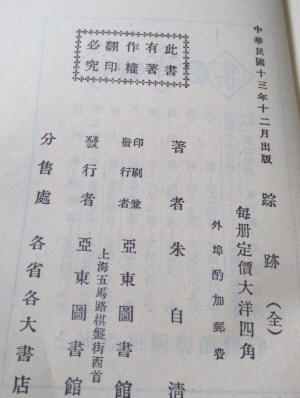 中華民國十三年十二月出版
踪跡（全）
每册定價大洋四角
外埠酌加郵費
著者 朱自清
印刷兼發行者 亞東圖書館
上海五馬路棋盤街西首
發行者 亞東圖書館
分售處 各省各大書店
此書
有著
作權
翻印
必究